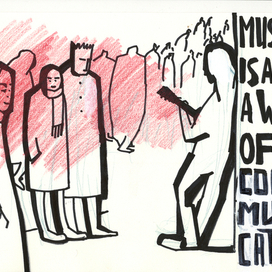 MUS
IS A
A W
OF
CO
MU
CAT